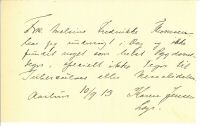 Frk. Malvine Fredrikke Thomsen
har jeg undersøgt i Dag og ikke
fundet noget som helst Sygdoms
tegn, specielt ikke Tegn til
Tuberkulose eller
Aarhus 10/9 13 Karen Jensen
Læge.